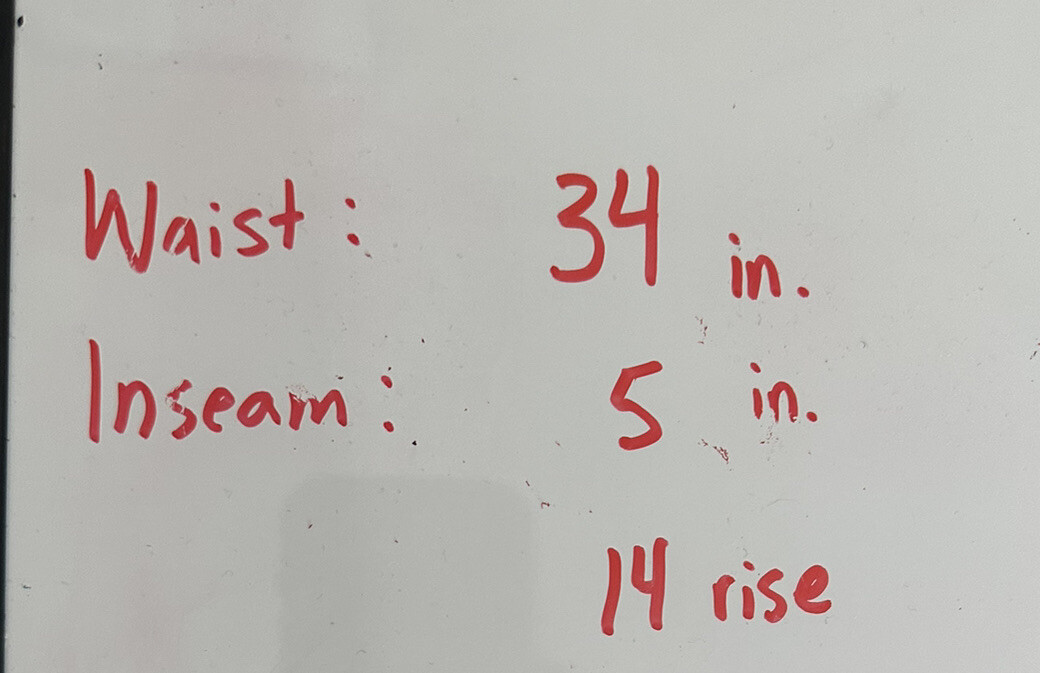 Waist: 34 in.
Inseam: 5 in.
14 rise